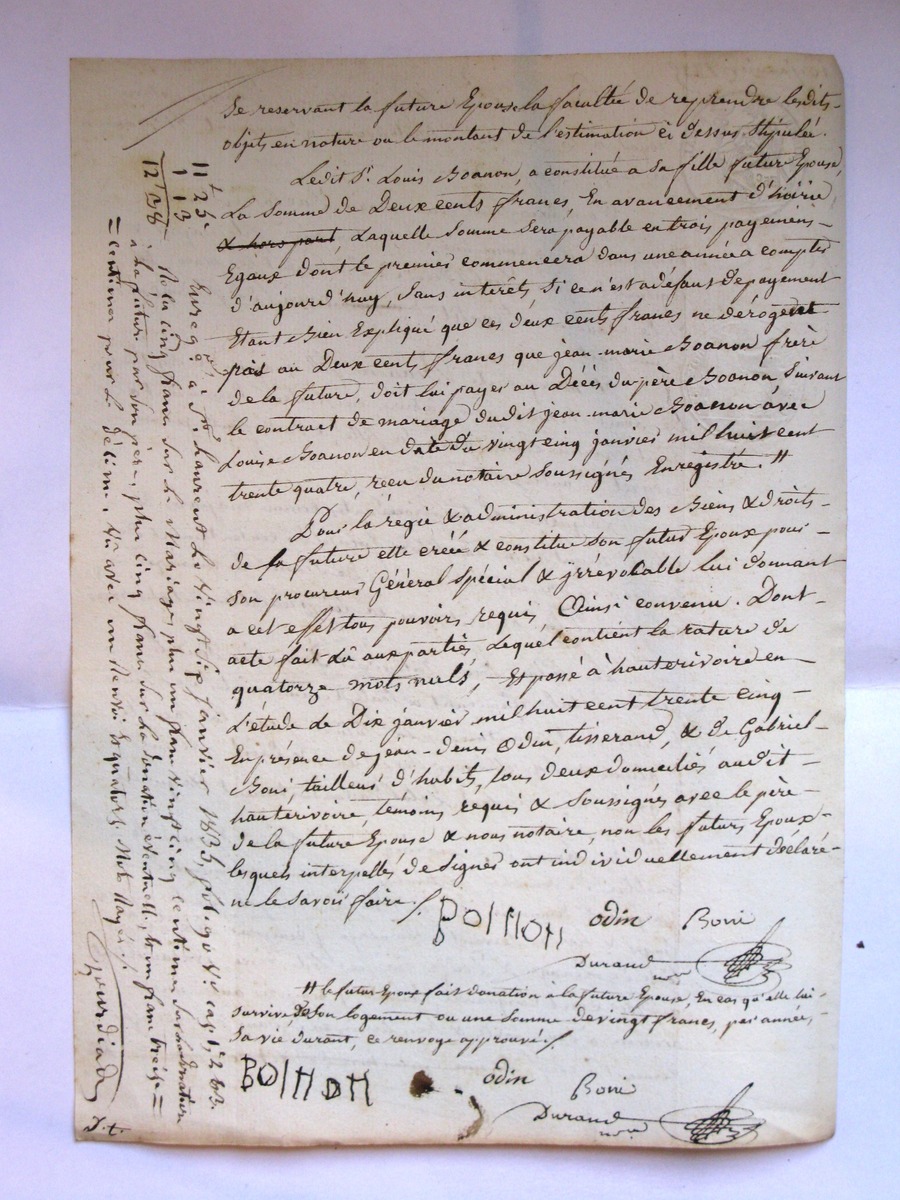 Se reservant la future Epouse la faculté de reprendre lesdits
objets en nature ou le montant de l'estimation ci dessus Stipulée.
Ledit Sr. Louis Boanon, a constitué a sa fille future Epouse,
La Somme de Deux cents francs, En avancement d'hoirie
& hors part, Laquelle Somme Sera payable en trois payemens
Egaux dont le premier commencera dans une année a compter
d'aujourd'huy, Sans interêts Si ce n'est a défaut de payement
Etant Bien Expliqué que ces deux cents francs ne dérogent
pas au Deux cents francs que jean-marie Boanon frère
de la future, doit lui payer au Décès du père Boanon, Suivant
le contract de mariage dudit jean marie Boanon avec
Louise Boanon en date du vingt cinq janvier mil huit cent
trente quatre, reçu du notaire Soussigné Enregistré. //
Pour la régie & administration des Biens & droits
de la future elle créé & constitue Son futur Epoux pour
Son procureur Général Spécial & irrévocable lui donnant
a cet effet tous pouvoirs requis, Ainsi convenu. Dont
acte fait Lû aux parties Lequel contient la rature de
quatorze mots nuls, Et passé à hauterivoire en
L'étude Le Dix janvier mil huit cent trente cinq
En présence de jean-denis Odin, tisserand, & de Gabriel
Boni, tailleur d'habits, tous deux domiciliés audit
hauterivoire, témoins requis & Soussignés avec le père
de la future Epouse & nous notaire, non les futurs Epoux
lesques interpellés de Signer ont individuellement déclaré
ne le Savoir faire./.
BOINON odin Boni
Durand nre
// le futur Epoux fait donation à la future Epouse, En cas qu'elle lui
Survive, de Son logement ou une Somme de vingt francs, par année,
Sa vie durant, ce renvoye approuvé./.
BOINON odin Boni
Durand nre
11 f 25 c
1 13
12 f 38
Enregé. à St. Laurent Le vingt Six janvier 1835, fol. 90 vo. cas. 1, 2 & 3.
Reçu cinq francs Sur Le Mariage, plus un franc vingt cinq centimes Sur La donation
à La future par Son père, plus cinq francs Sur La donation éventuelle, & un franc treize
centimes pour Le décime,
Gourdiad
S.t.